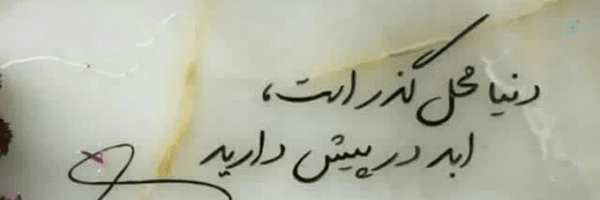 دنیا محل گذر است،
ابد در پیش دارید